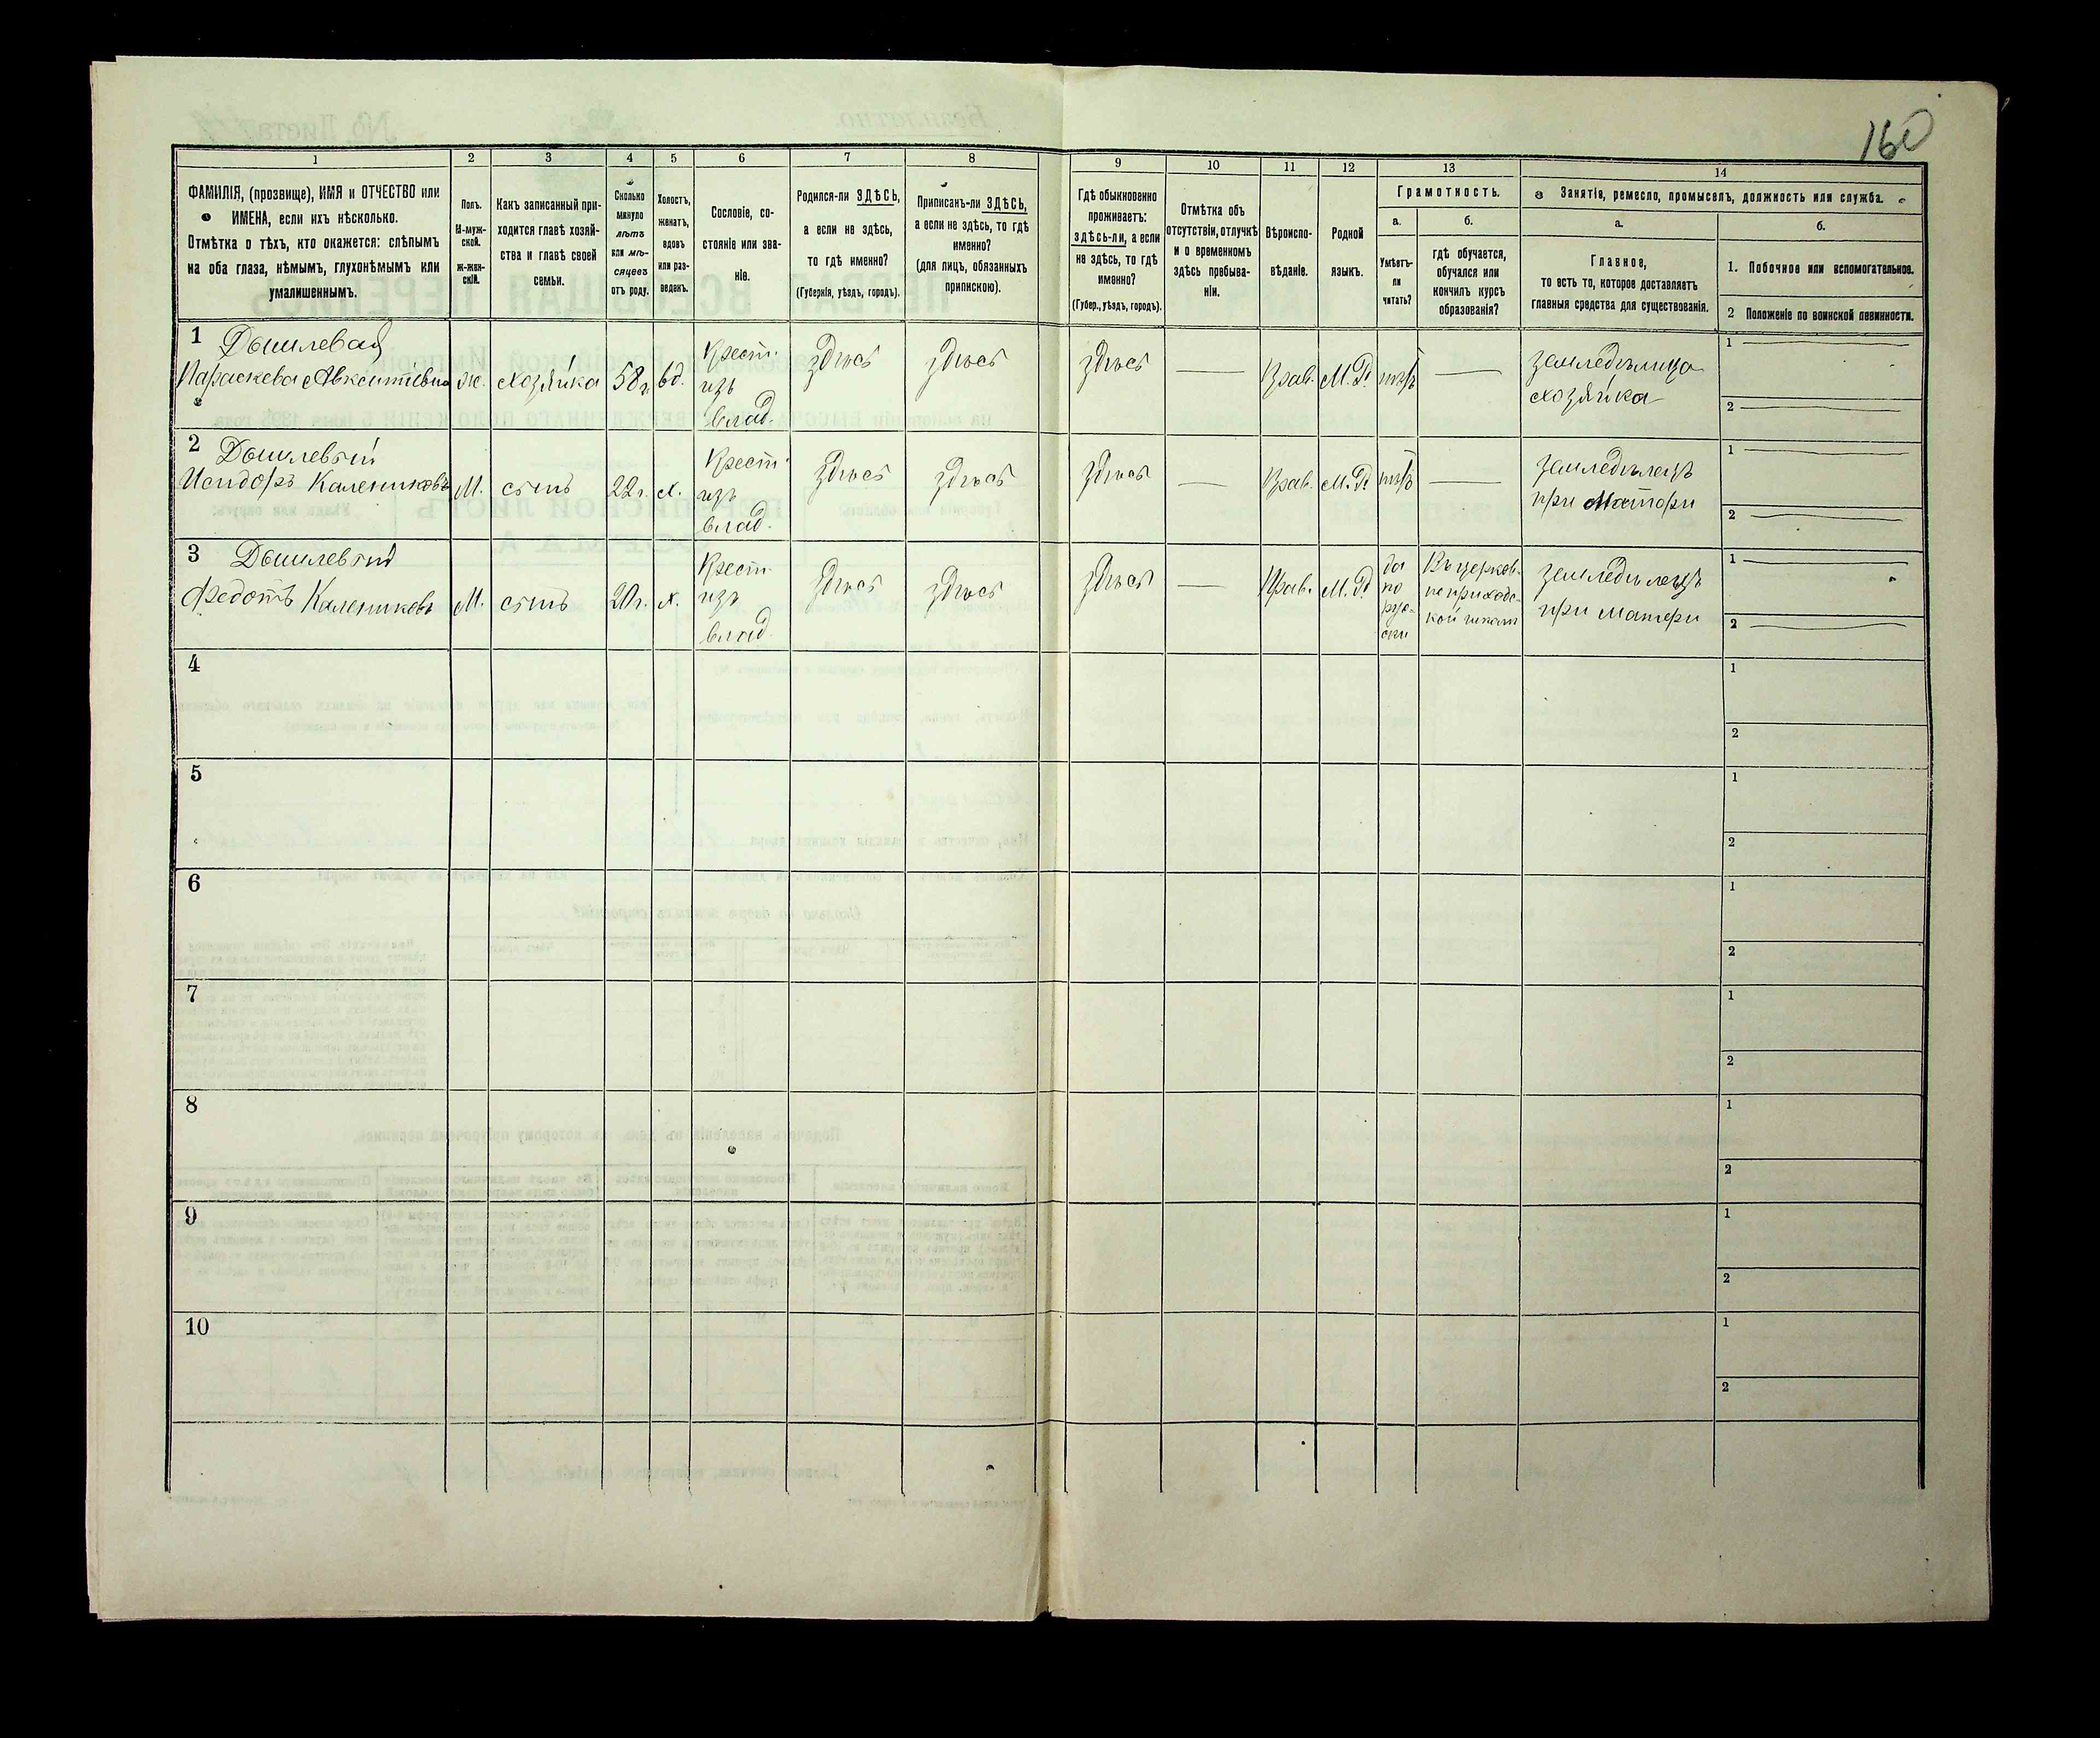 160
1
2
3
4
5
6
7
8
9
10
11
12
13
14
ФАМИЛІЯ, (прозвище), ИМЯ и ОТЧЕСТВО или
ИМЕНА, если ихъ нѣсколько.
Отмѣтка о тѣхъ, кто окажется: слѣпымъ
на оба глаза, нѣмымъ, глухонѣмымъ или
умалишеннымъ.
Полъ.
М-муж-
ской.
ж-жен-
скій.
Какъ записанный при-
ходится главѣ хозяй-
ства и главѣ своей
семьи.
Сколько
минуло
лѣтъ
или мѣ-
сяцевъ
отъ роду.
Холостъ,
женатъ,
вдовъ
или раз-
веденъ.
Сословіе, со-
стояніе или зва-
ніе.
Родился-ли ЗДѢСЬ,
а если не здѣсь,
то гдѣ именно?
(Губернія, уѣздъ, городъ).
Приписанъ-ли ЗДѢСЬ,
а если не здѣсь, то гдѣ
именно?
(для лицъ, обязанныхъ
припискою).
Гдѣ обыкновенно
проживаетъ:
здѣсь-ли, а если
не здѣсь, то гдѣ
именно?
(Губер., уѣздъ, городъ).
Отмѣтка объ
отсутствіи, отлучкѣ
и о временномъ
здѣсь пребыва-
ніи.
Вѣроиспо-
вѣданіе.
Родной
языкъ.
Грамотность.
а.
Умѣетъ-
ли
читать?
б.
гдѣ обучается,
обучался или
кончилъ курсъ
образованія?
Занятія, ремесло, промыселъ, должность или служба.
а.
Главное,
то есть то, которое доставляетъ
главныя средства для существованія.
б.
1. Побочное или вспомогательное.
2 Положеніе по воинской повинности.
1
Дышлевая
Параскева Авксентіевна
ж.
хозяйка
58 г.
вд.
Крест.
изъ
влад.
здѣсь
здѣсь
здѣсь
Прав.
М. Р.
нѣтъ
земледѣлица
хозяйка
1
2
2
Дышлевый
Исидоръ Калениковъ
М.
сынъ
22 г.
х.
Крест.
изъ
влад.
здѣсь
здѣсь
здѣсь
Прав.
М. Р.
нѣтъ
земледѣлецъ
при матери
1
2
3
Дышлевый
Федотъ Калениковъ
М.
сынъ
20 г.
х.
Крест.
изъ
влад.
здѣсь
здѣсь
здѣсь
Прав.
М. Р.
да
по
рус-
ски
Въ церков-
не приходс-
кой школѣ
земледѣлецъ
при матери
1
2
4
1
2
5
1
2
6
1
2
7
1
2
8
1
2
9
1
2
10
1
2